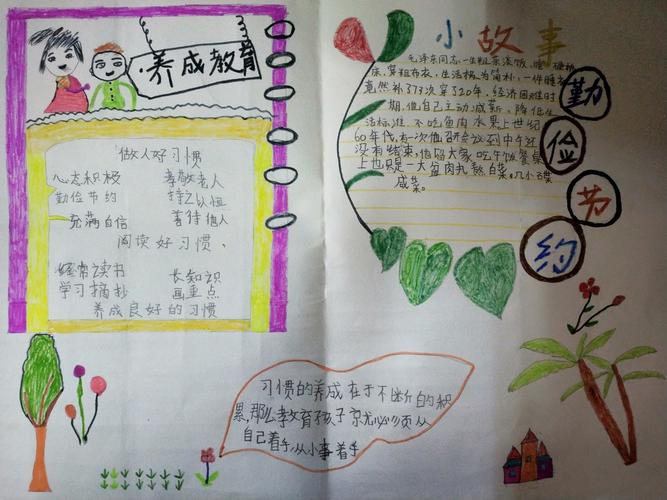 养成教育
做人好习惯
心态积极 孝敬老人
勤俭节约 持之以恒
充满自信 善待他人
阅读好习惯、
经常读书 长知识
学习摘抄 画重点
养成良好的习惯
小故事
毛泽东同志一生粗茶淡饭、睡硬板
床、穿粗布衣、生活极为简朴、一件睡衣
竟然补了73次穿了20年、经济困难时
期、他自己主动减薪、降低生
活标准、不吃鱼肉水果上世纪
60年代、有一次他召开会议到中午还
没有结束、他留大家吃午饭餐桌
上也只是一大盆肉丸熬白菜。几小碟
咸菜。
勤
俭
节
约
习惯的养成在于不断的积
累,那么教育孩子就必须从
自己着手,从小事着手